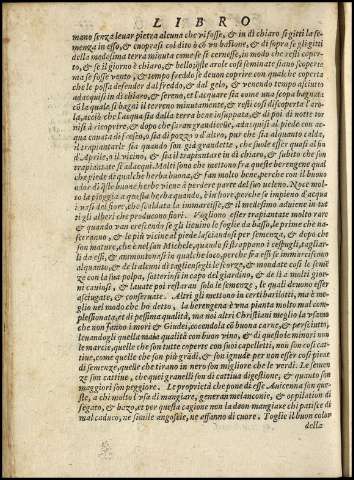 LIBRO
mano senza leuar pietra alcuna che vi fosse, & in di chiaro si gitti la se-
menza in esso, & cuoprasi col dito ò cō vn bastone, & di sopra se gli gitti
della medesima terra minuta come se si cernesse, in modo che resti coper-
to, & se il giorno è chiaro, & bello esse arole così seminate siano scoperte
ma se fosse vento, & tempo freddo se deuon coprire con qualche coperta
che le possa defender dal freddo, & dal gelo, & venendo tempo asciutto
adacquisi in di chiaro, & sereno, et l'acquare sia come una scopa bagnata
cō la quale si bagni il terreno minutamente, & resti così discoperta l'aro-
la, acciò che l'acqua sia dalla terra bene insuppata, & di poi di notte tor-
nisi à ricoprire, & dopo che saran grandicelle, adacquisi al piede con ac-
qua cauata di fresco, ò sia di pozzo ò d'altro, pur che sia alquanto calda,
il trapiantarle sia quando son già grandette, che suole esser quasi al fin
d'Aprile, ò li vicino, & sia il trapiantare in di chiaro, & subito che son
trapiantate si adacqui. Molti sono che mettono fra queste berengene qual
che piede di qualche herba buona, & fan molto bene, perche con il buono
odor di queste buone herbe viene à perdere parte del suo ueleno. Noce mol-
to la pioggia à questa herba quando, è in fiore, perche se impieno d'acqua
i vasi del fiore, & ò si calda la immarcisse, & il medesimo aduiene in tut
ti gli alberi che producono fiori. Vogliono esser trapiantate molto rare
& quando van crescendo se gli leuino le foglie da basso, le prime che na-
scerano, & le più vicine al piede lasciandosi per semenza, & dopò che
son mature, che è nel san Michele, quando si strappano i cespugli, tagliar-
li da essi, & ammontonati in qualche loco, perche fra essi se immarciscono
alquanto, & de li alcuni dì taglienseglie le fronze, & mondate così le semē
ze con la sua polpa, sotterrinsi in capo del giarduno, & de li à molti gior-
ni cauinsi, & lauate poi restarau solo le semenze, le quali deuono esser
asciugate, & conseruate. Altri gli mettono in certi barilotti, ma è me-
glio nel modo che ho detto. la berengena è vna pianta molto mal com-
plessionata, et di pessima qualità, ma noi altri Christiani meglio la usiamo
che non fanno i mori & Giudei, cocendola cō buona carne, & persciuto,
leuandogli quella mala qualità con buon vino, & di queste ò minori non
le marcie, quelle che son tutte coperte con suoi capelletti, non son così cat
tiue, come quelle che son più grādi, & son ignude per non esser così piene
di semenze, quelle che tirano in nero son migliore che le verdi. Le semen-
ze son cattiue, che quei granelli son di cattiua digestione, & quanto son
maggiori son peggiore. Le proprietà che pone di esse Auicenna son que-
ste, a chi molto l'usa di mangiare, generan melanconie, & oppilation di
fegato, & bozo, et per questa cagione non la deon mangiare chi patisce di
mal caduco, ne simile angoscie, ne affanno di cuore. Toglie il buon color
della